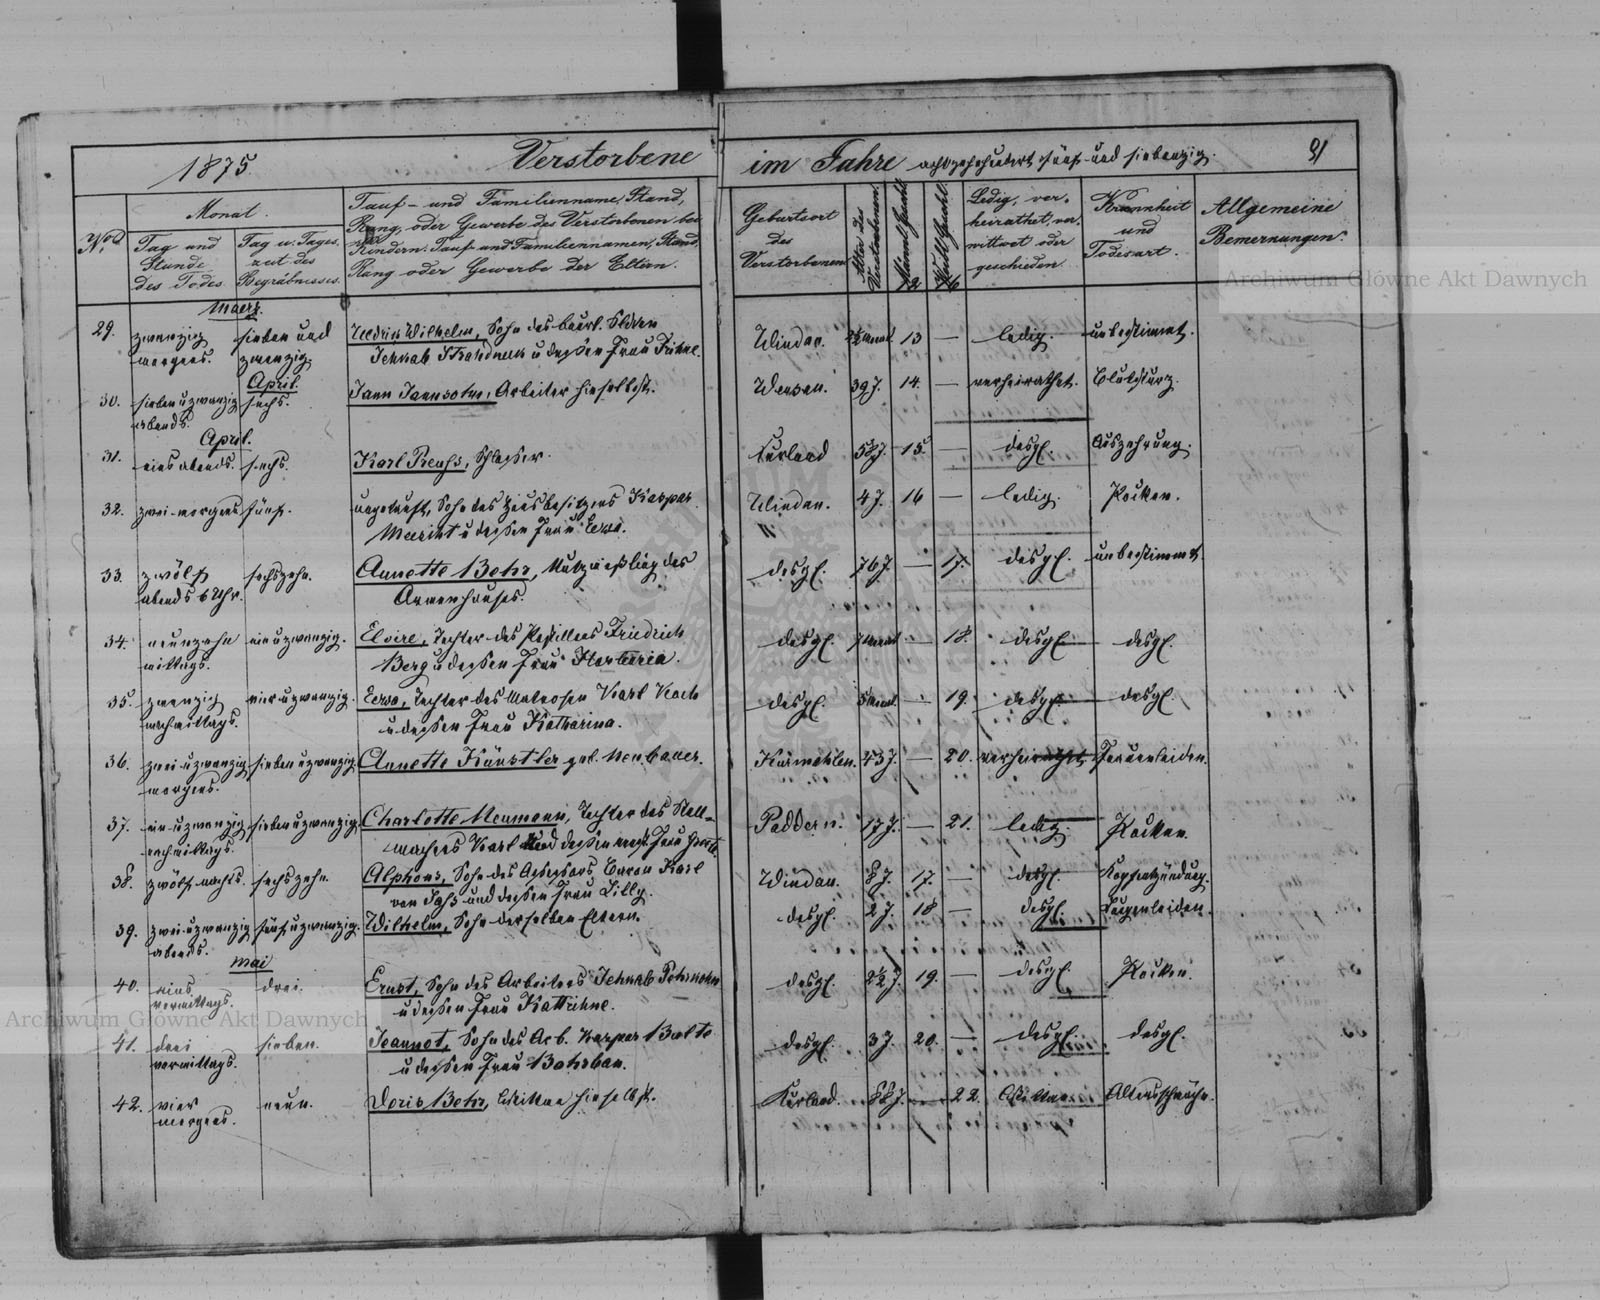 1875.
Verstorbene
im Jahre achtzehnhundert fünf und siebenzig.
91
No.
Monat.
Tag und
Stunde
des Todes
Tag u. Tages-
zeit des
Begräbnisses.
Tauf- und Familienname, Stand,
Rang, oder Gewerbe des Verstorbenen bei
Kindern. Tauf und Familiennamen, Stand,
Rang oder Gewerbe der Eltern.
Geburtsort
des
Verstorbenen
Alter des
Verstorbenen.
Männl. Geschl.
Weibl. Geschl.
Ledig, ver-
heirathet, ver-
wittwet oder
geschieden
Krankheit
und
Todesart.
Allgemeine
Bemerkungen.
Maerz.
29. zwanzig sieben und Wilhelm, Sohn des
morgens. zwanzig u dessen Frau Trihne.
Windau. 13 — ledig. unbestimmt.
April.
30. sieben u zwanzig sechs. Jann Jannsohn, Arbeiter hieselbst.
abends.
39 J. 14. — verheirathet. Blutsturz.
April.
31. eins abends. sechs. Karl Preuss, Schlosser.
Kurland 15. — desgl. Auszehrung.
32. zwei morgens fünf. ungetauft, Sohn des Hausbesitzers Kaspar
u dessen Frau Ewa.
Windau. 4 J. 16 — ledig. Pocken.
33. zwölf sechszehn. Annette Bohr, des
abends 6 Uhr. Armenhauses.
desgl. 76 J. — 17. desgl. unbestimmt
34. neunzehn ein u zwanzig. Elvire, Tochter des Friedrich
mittags. Berg u dessen Frau
desgl. — 18. desgl. desgl.
35. zwanzig vier u zwanzig. Ewa, Tochter des Matrosen Karl Koch
nachmittags. u dessen Frau Katharina.
desgl. — 19. desgl. desgl.
36. zwei u zwanzig sieben u zwanzig. Annette Künstler geb. Neubauer.
morgens.
43 J. — 20. verheirathet Frauenleiden.
37. ein u zwanzig sieben u zwanzig. Charlotte Neumann, Tochter des Stell-
nachmittags. machers Karl und dessen Frau
Paddern. 17 J. — 21. ledig. Pocken.
38. zwölf nachts. sechszehn. Alphons, Sohn des Assessors Baron Karl
von Sass und dessen Frau Lilly.
Windau. 8 J. 17. — desgl. Kopfentzündung.
39. zwei u zwanzig fünf u zwanzig. Wilhelm, Sohn derselben Eltern.
abends.
desgl. 2 J. 18 — desgl. Lungenleiden.
Mai
40. eins drei. Ernst, Sohn des Arbeiters Jehkab
vormittags. u dessen Frau Kattrihne.
desgl. 2½ J. 19. — desgl. Pocken.
41. drei sieben. Jeannot, Sohn des Arb. Kaspar
vormittags. u dessen Frau
desgl. 3 J. 20. — desgl. desgl.
42. vier neun. Doris Bohr, Wittwe hieselbst.
morgens.
Kurland. 88 J. — 22. Wittwe Altersschwäche.
Archiwum Główne Akt Dawnych
Archiwum Główne Akt Dawnych